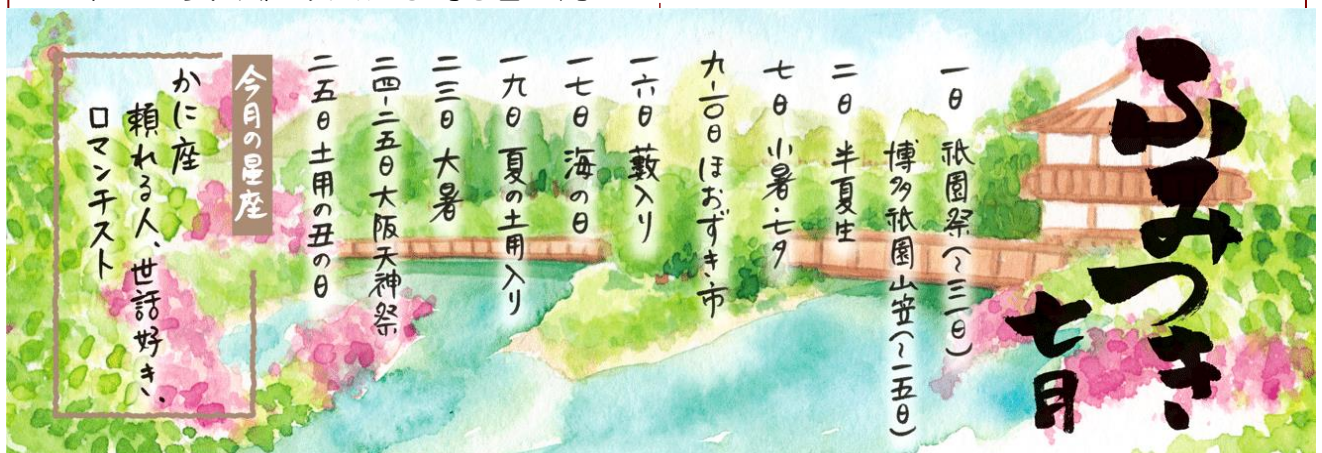 ふみつき
七月
一日 祇園祭(〜三一日)
博多祇園山笠(〜一五日)
二日 半夏生
七日 小暑・七夕
九-一〇日 ほおずき市
一六日 藪入り
一七日 海の日
一九日 夏の土用入り
二三日 大暑
二四-二五日 大阪天神祭
二五日 土用の丑の日
今月の星座
かに座
頼れる人、世話好き、
ロマンチスト